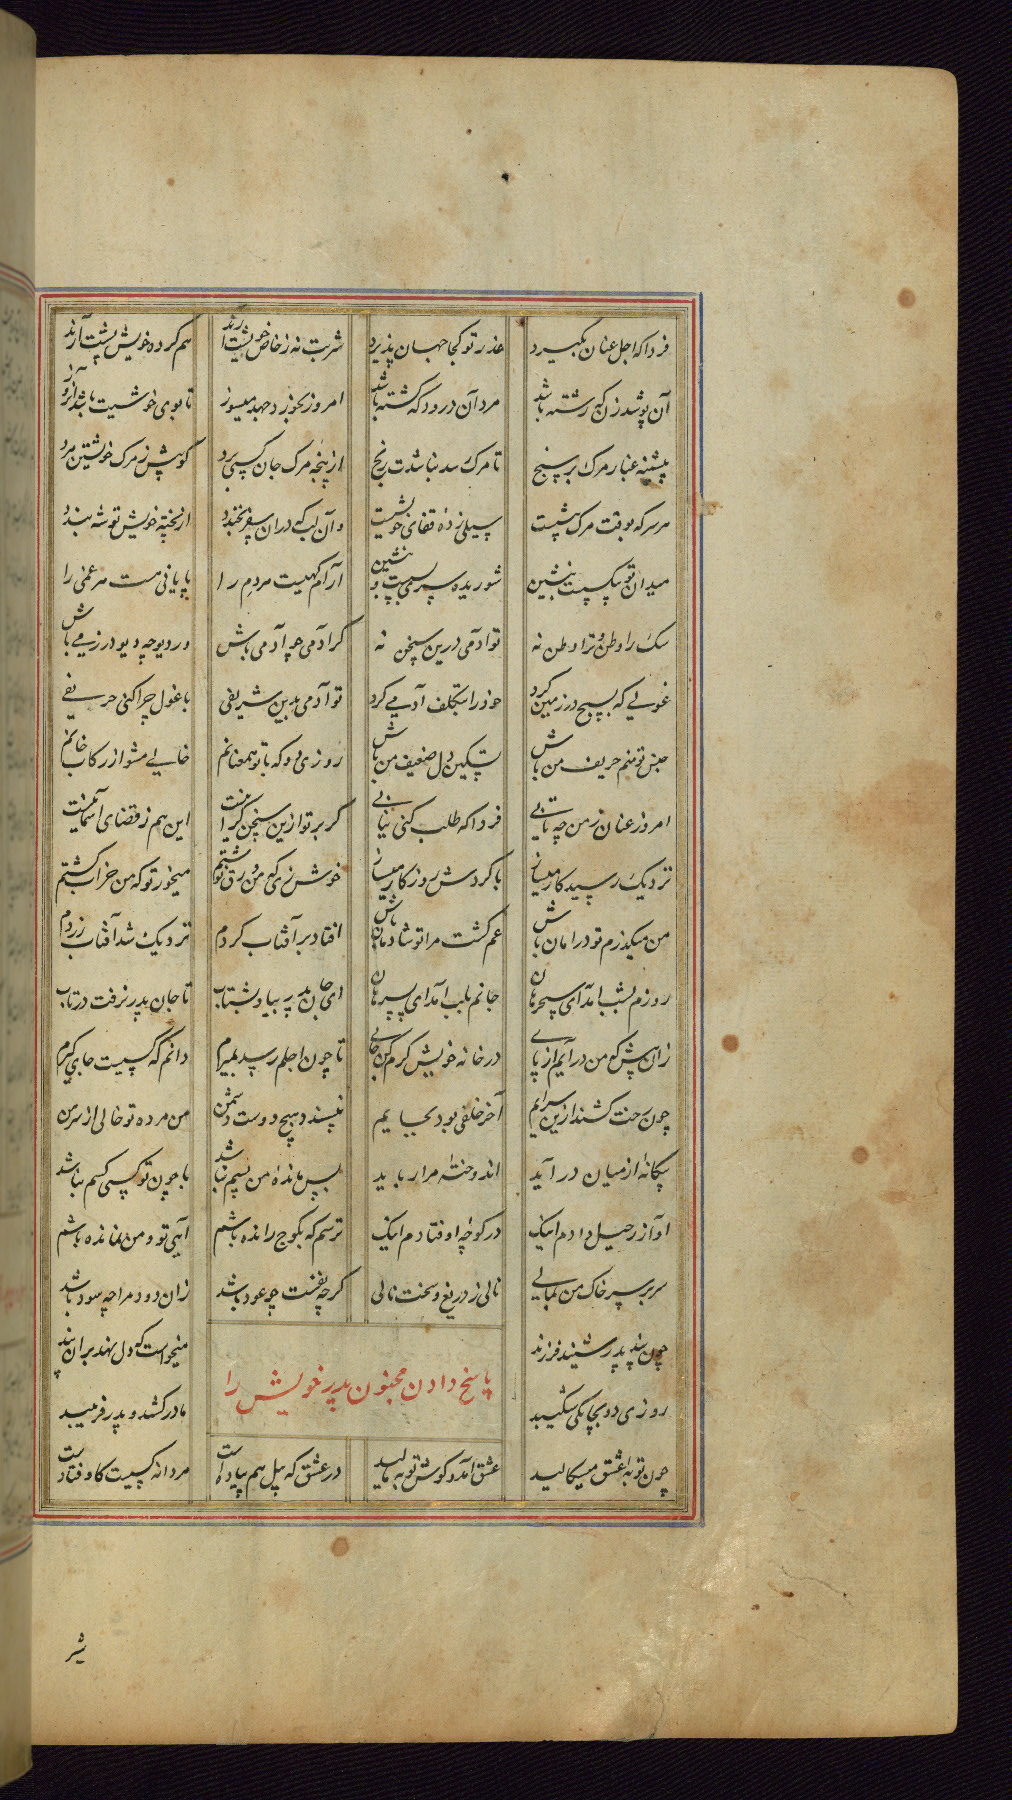 فردا که اجل عنان بگیرد عذر تو کجا جهان پذیرد شربت نه ز خاص خویشت آرند هم کرده خویش پیشت آرند
آن پوشد زن که رشته باشد مرد آن درود که کشته باشد امروز بخور و جهد میسوز تا بوی خوشیت باشد آنروز
پیشینه عیار مرگ برسنج تا مرگ رسد نباشدت رنج از پنجه مرگ جان کسی برد کو پیش ز مرگ خویشتن مرد
هر سر که بوقت مرگ پیشست سیلی زده قفای خویشست و آن لب که در آن سفر بخندد از پخته خویش توشه بندد
میدان تو بیکسست بنشین شوریده سری بسست بنشین آرام گهیست هر دمی را پایانی هست هر غمی را
سگ را وطن و ترا وطن نه تو آدمی درین سخن نه گر آدمی چو آدمی باش ور دیو چو دیو در زمی باش
غولی که بسیج در زمین کرد خود را بتکلف آدمی کرد تو آدمی بدین شریفی با غول چرا کنی حریفی
جنس تو منم حریف من باش تسکین دل ضعیف من باش روزی دو که با تو همعنانم خالی مشو از رکاب خانم
امروز عنان ز من چه تابی فردا که طلب کنی نیابی گر بر تو ازین سخن گرانست این هم ز قضای آسمانست
نزدیک رسید کار میساز با گردش روزگار میساز خوش زی که من ورق نوشتم میخور تو که من خراب گشتم
من میگذرم تو در امان باش غم کشت مرا تو شادمان باش افتاد بر آفتاب گردم نزدیک شد آفتاب زردم
روزم بشب آمد ای سحر هان جانم بلب آمد ای پسر هان ای جان پدر بیا و بشتاب تا جان پدر نرفت دریاب
زان پیش که من درآیم از پای در خانه خویش گرم کن جای تا چون اجلم رسد بمیرم دانم که کیست جای گیرم
چون رخت کشند ازین سرایم آخر خلفی بود بجایم نپسندد هیچ دوست و دشمن من مرده تو خالی از سر من
بیگانه از میان درآید اندوخته مرا رباید پس مانده من بسم نباشد با چون تو کسی کسم نباشد
آواز رحیل دادم اینک در کوچه اوفتادم اینک ترسم که بکوچ رانده باشم آیی تو و من نمانده باشم
سر بر سر خاک من نمایی نالی ز دریغ و سخت نالی گرچه نفست چو عود باشد زان دود مرا چه سود باشد
چون پند پدر شنید فرزند میخواست که دل نهد بران پند
پاسخ دادن مجنون پدر خویش را
روزی دو بچابکی شکیبد مادر کشد و پدر فریبد
چون توبه عشق میسگالید عشق آمد و گوش توبه مالید در عشق که پیل هم پیادست مردانه کسیست کاوفتادست
شیر